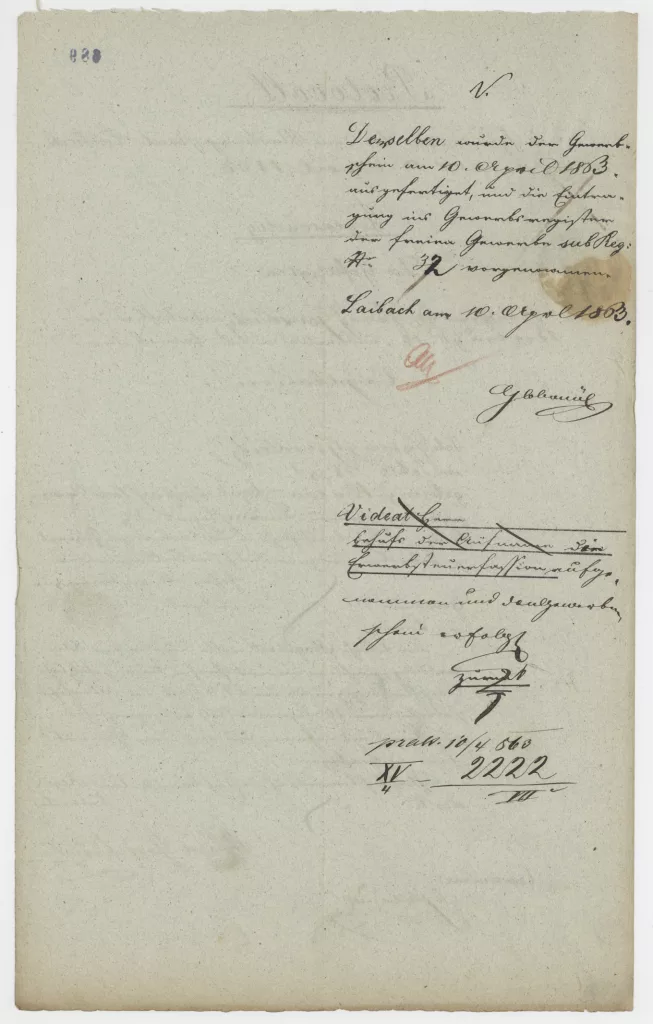 V.
Demselben wurde der Gewerb-
schein am 10. April 1863.
ausgefertiget, und die Eintra-
gung ins Gewerbsregister
der freien Gewerbe sub Reg:
No 32 vorgenommen.
Laibach am 10. April 1863.
Videat Herr
behufs der Aufname der
Erwerbsteuerfassion, aufge-
nommen und
schein erfolgt
zurük
10/4 863
XV/4 2222
VII